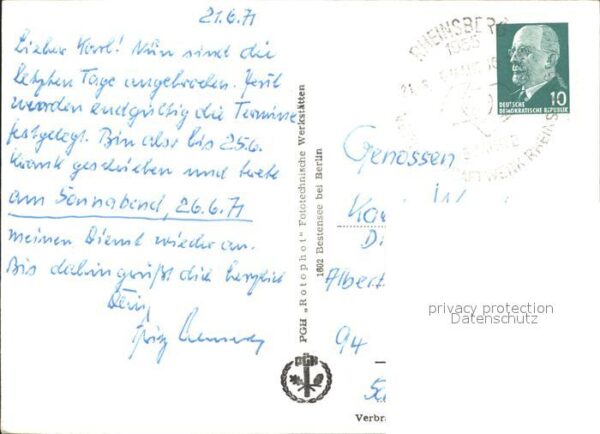 21.6.71
Lieber Karl! Nun sind die
letzten Tage angebrochen. Jetzt
werden endgültig die Termine
festgelegt. Bin also bis 25.6.
krank geschrieben und trete
am Sonnabend, 26.6.71
meinen Dienst wieder an.
Bis dahin grüßt dich herzlich
Dein
Fritz
PGH „Rotophot" Fototechnische Werkstätten
1802 Bestensee bei Berlin
PGH
RHEINSBERG
DEUTSCHE
DEMOKRATISCHE REPUBLIK 10
Genossen
Albert
94
Verbr
privacy protection
Datenschutz